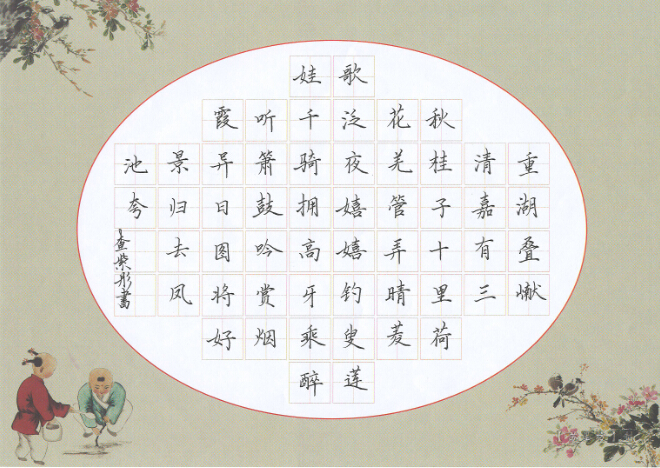 重湖叠𪩘
清嘉有三
秋桂子十里荷
花羌管弄晴菱
歌泛夜嬉嬉钓叟莲
娃千骑拥高牙乘醉
听箫鼓吟赏烟
霞异日图将好
景归去凤
池夸
查紫彤書